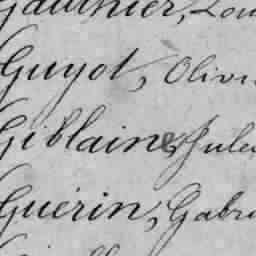 Gauthier, Lou
Guyot, Olivi
Giblaine, Jules
Guérin, Gabri